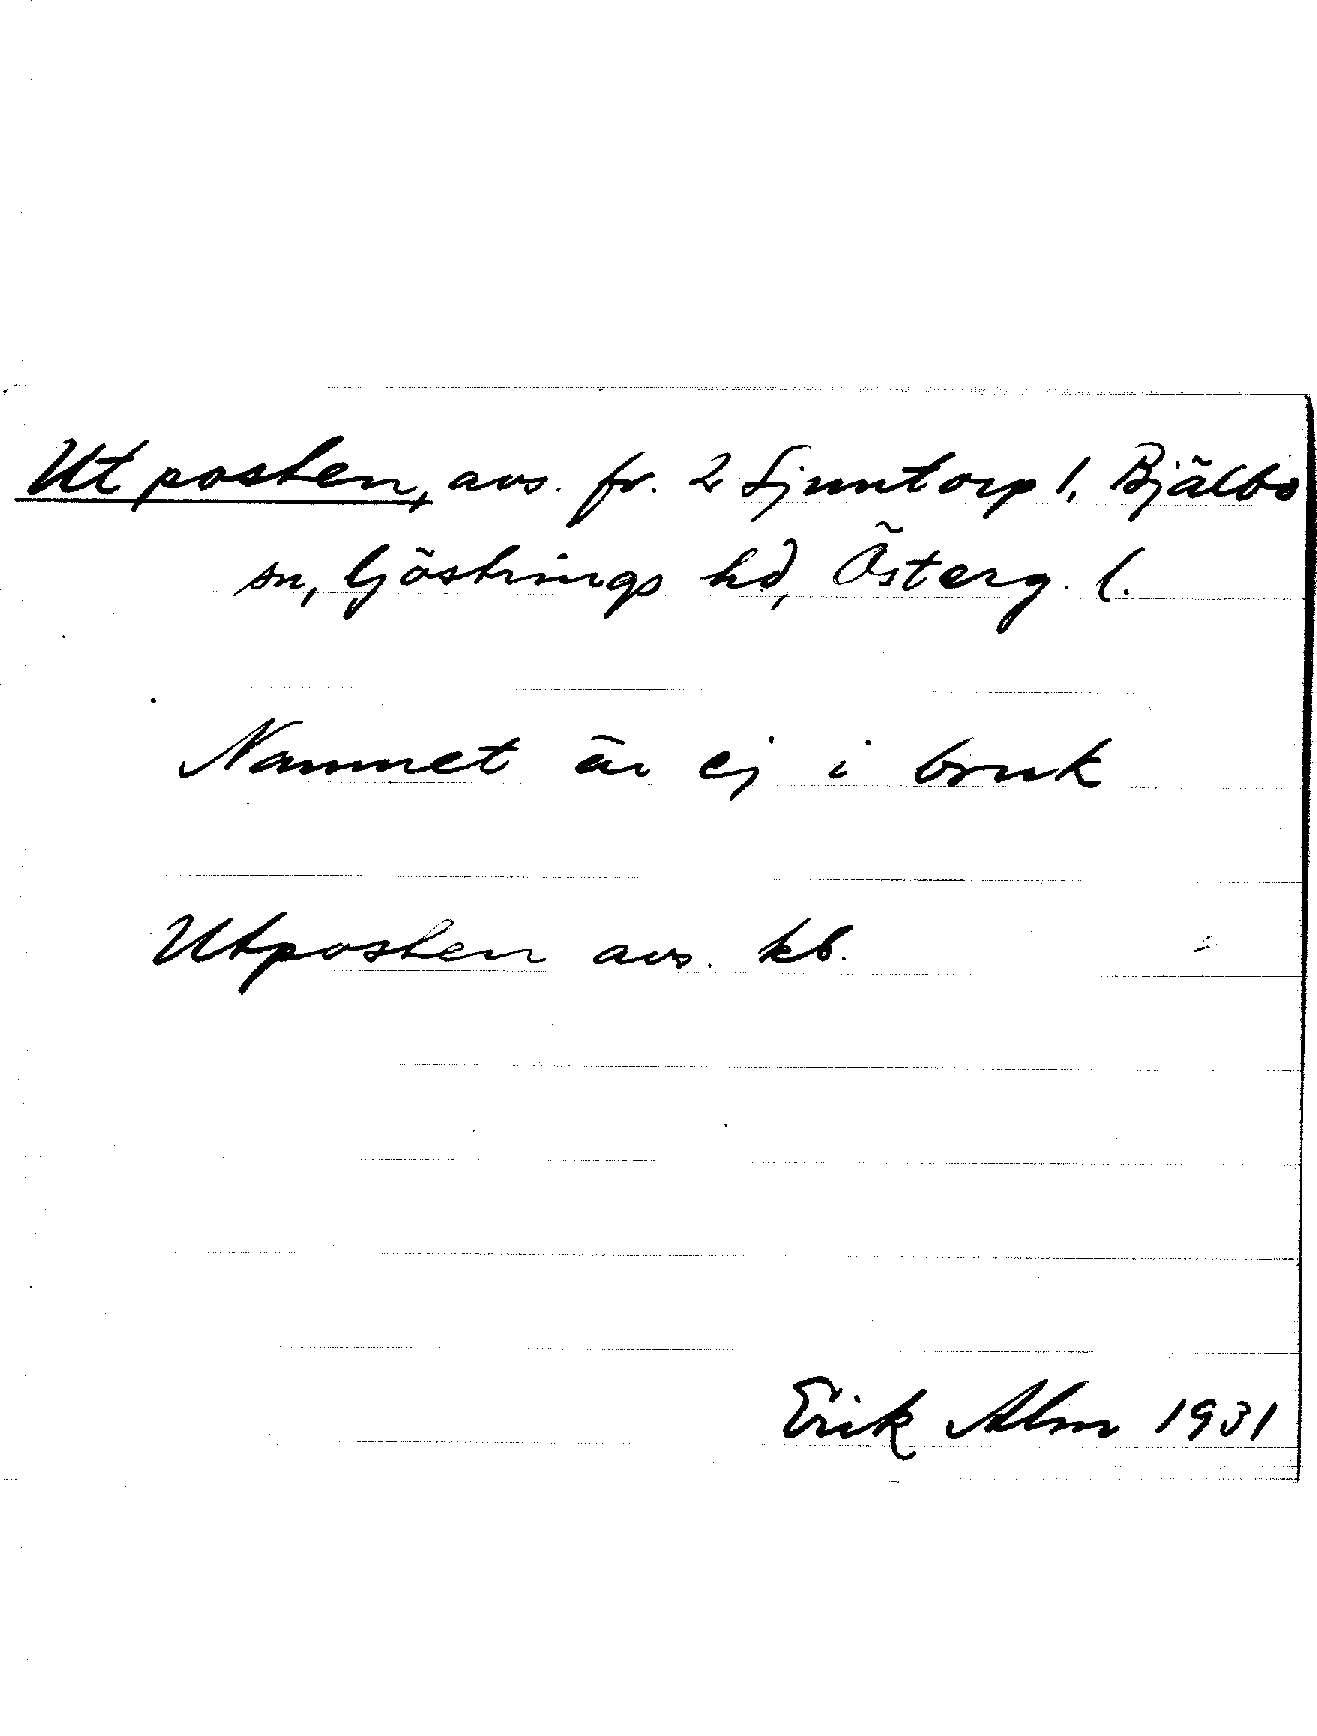 Utposten, avs. fr. 2 Sjuntorp 1, Bjälbo
sn, Göstrings hd, Österg. l.
Namnet är ej i bruk
Utposten avs. kb.
Erik Alm 1931